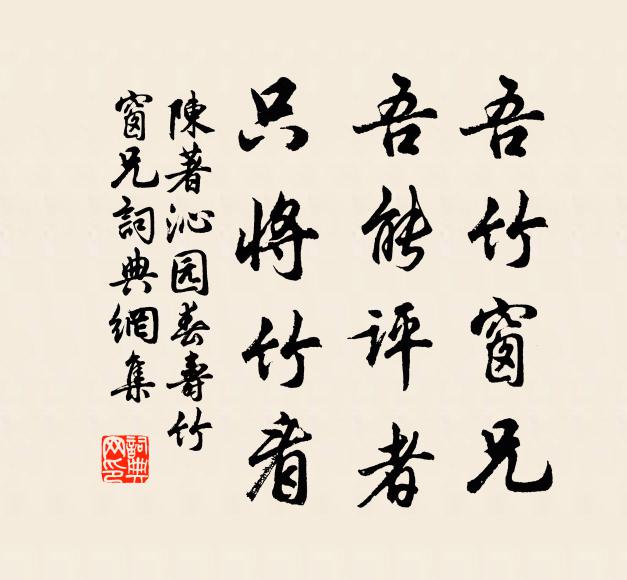 吾竹窗兄
吾能评者
只將竹看
陳著沁园春壽竹
窗兄詞典網集
詞典网印